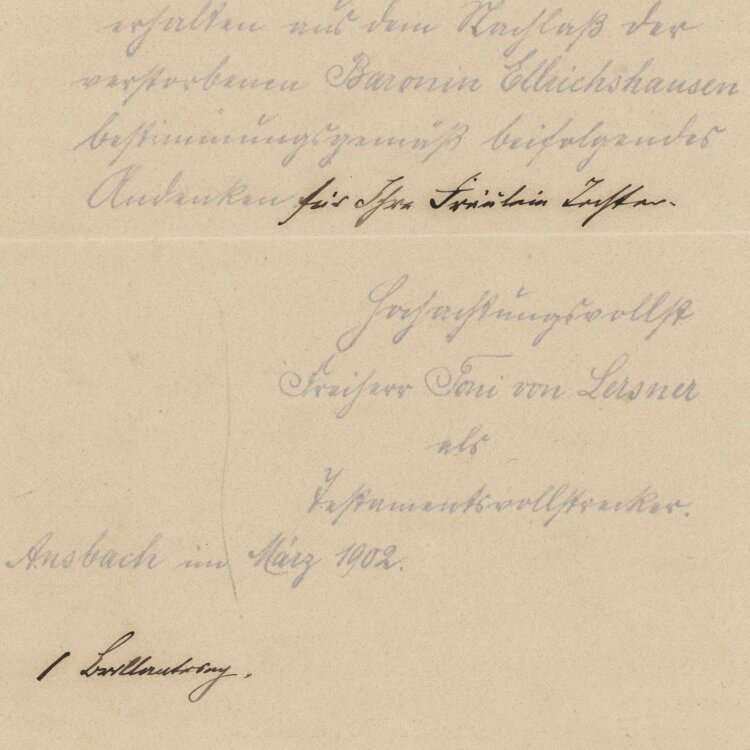 erhalten aus dem Nachlaß der
verstorbenen Baronin Ellrichshausen
bestimmungsgemäß beifolgendes
Andenken für Ihre Fräulein Tochter.
Hochachtungsvollst
Freiherr Toni von Lersner
als
Testamentsvollstrecker.
Ansbach im März 1902.
1